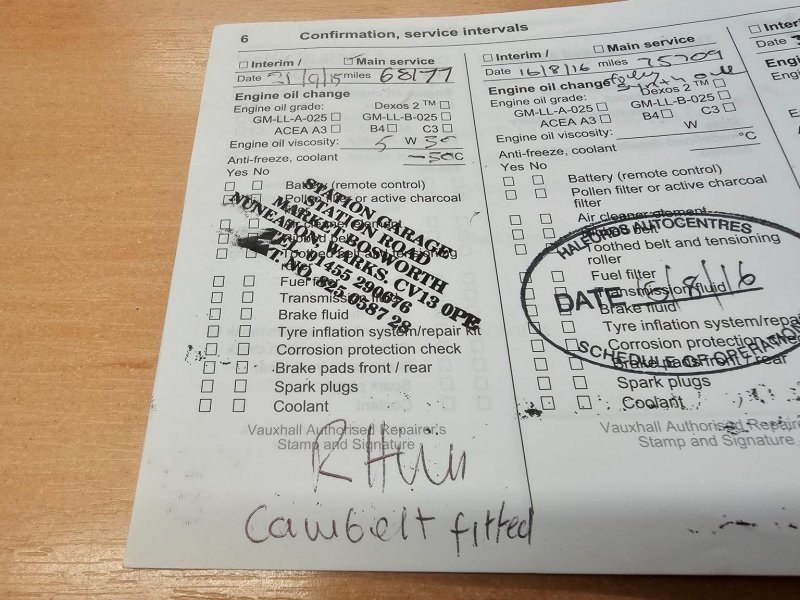 6 Confirmation, service intervals
Interim / Main service
Date 21/9/15 miles 68177
Engine oil change
Engine oil grade: Dexos 2 ™
GM-LL-A-025 GM-LL-B-025
ACEA A3 B4 C3
Engine oil viscosity: 5 W 30
Anti-freeze, coolant -50C
Yes No
Battery (remote control)
Pollen filter or active charcoal
Fuel
Transmission
Brake fluid
Tyre inflation system/repair kit
Corrosion protection check
Brake pads front / rear
Spark plugs
Coolant
STATION GARAGE
STATION ROAD
MARKET BOSWORTH
NUNEATON, WARKS. CV13 0PE
TEL. 01455 290676
VAT. NO. 825 0587 28
Vauxhall Authorised Repairer's
Stamp and Signature
R Hill
Cambelt fitted
Interim / Main service
Date 16/8/16 miles 75709
Engine oil change
Dexos 2 ™
Engine oil grade:
GM-LL-A-025 GM-LL-B-025
ACEA A3 B4 C3
Engine oil viscosity: W
Anti-freeze, coolant °C
Yes No
Battery (remote control)
Pollen filter or active charcoal
filter
Air cleaner element
Toothed belt and tensioning
roller
Fuel filter
Transmission fluid
Brake fluid
Tyre inflation system/repair
Corrosion protection check
Brake pads front / rear
Spark plugs
Coolant
HALFORDS AUTOCENTRES
DATE 16/8/16
SCHEDULE OF OPERATION
Vauxhall Authorised Repairer
Stamp and Signature
Interim
Date
Engi
Engi